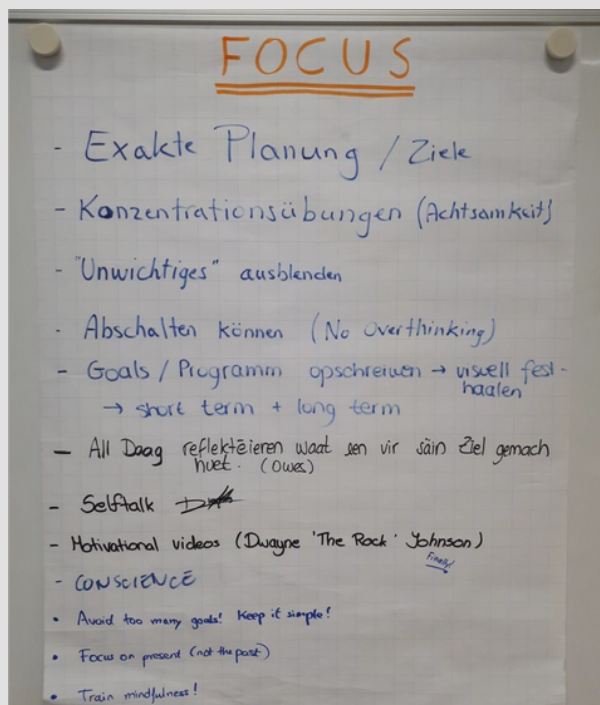 FOCUS
- Exakte Planung / Ziele
- Konzentrationsübungen (Achtsamkeit)
- "Unwichtiges" ausblenden
- Abschalten können (No Overthinking)
- Goals / Programm opschreiwen → visuell fest-
haalen
→ short term + long term
- All Daag reflektéieren waat een vir säin Ziel gemach
huet. (Owes)
- Selftalk
- Motivational videos (Dwayne 'The Rock' Johnson)
Finally!
- CONSCIENCE
• Avoid too many goals! Keep it simple!
• Focus on present (not the past)
• Train mindfulness!